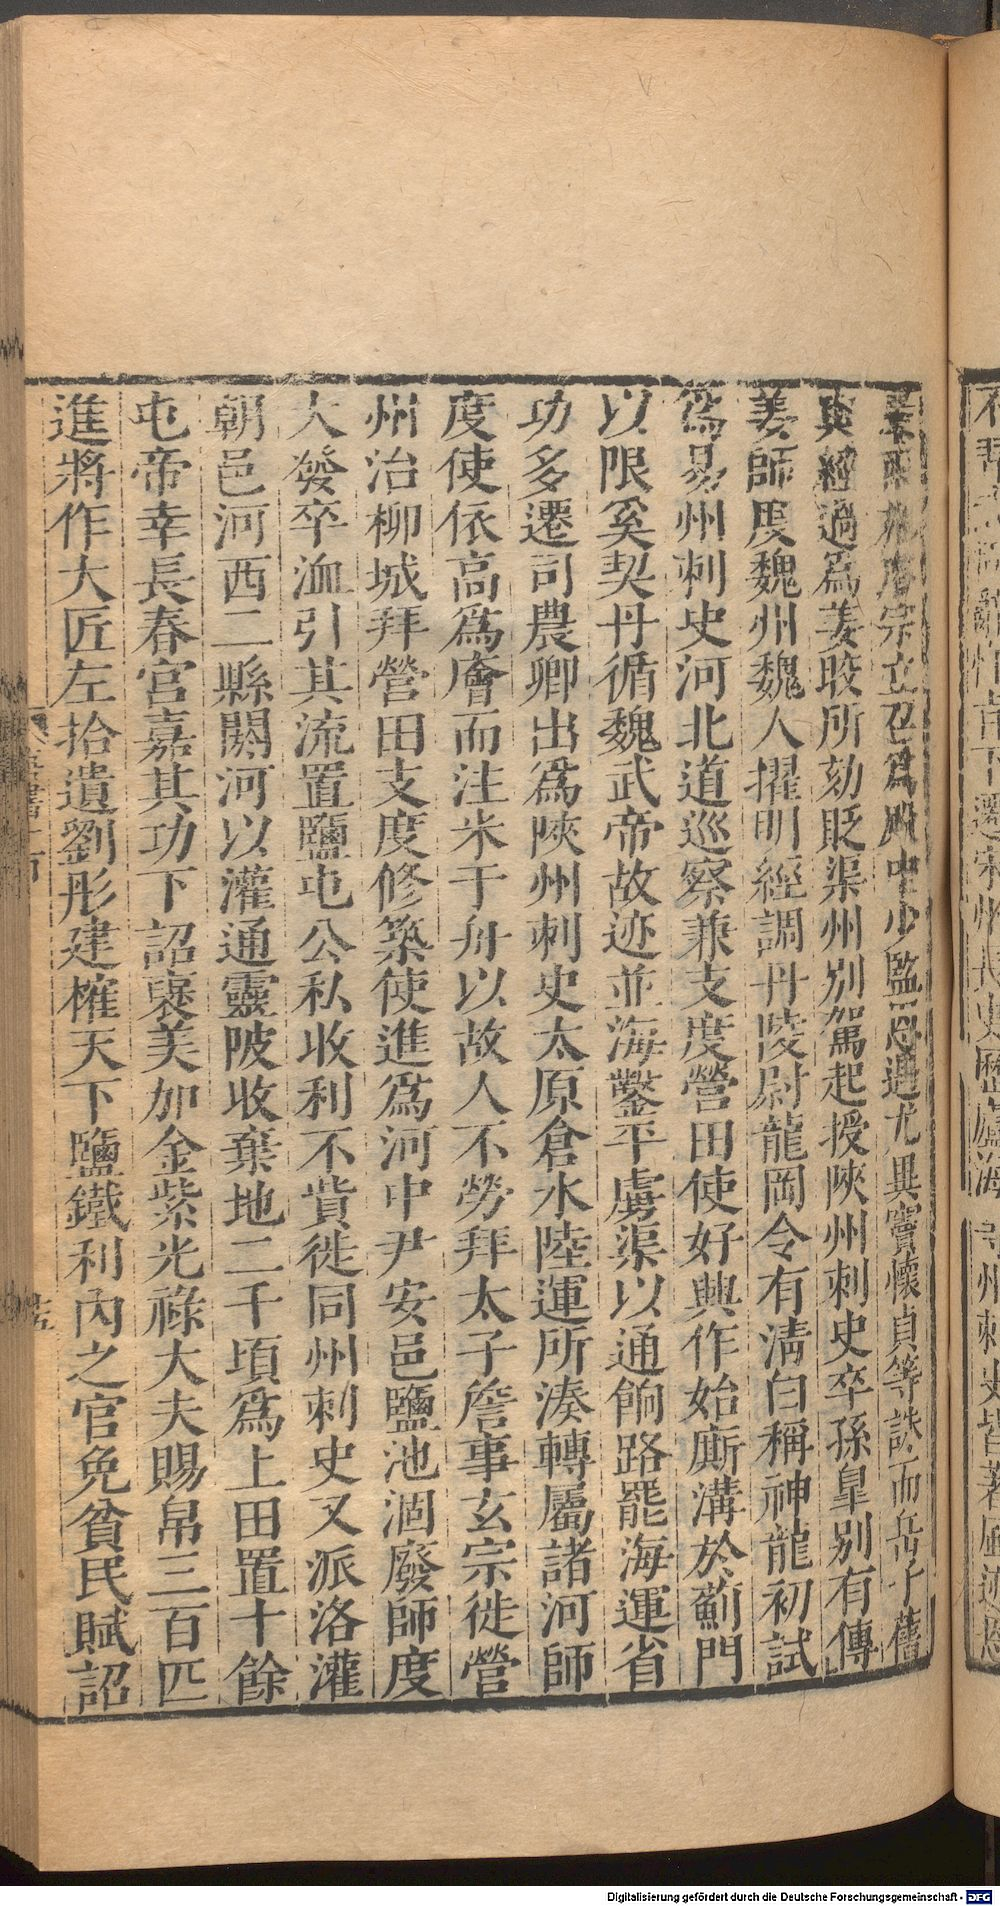 下遷宋州長史歷廬海等州刺史皆著風迹
州睿宗立召爲殿中少監恩遇尤異竇懷貞等誅而岳子舊
與經過爲姜晈所劾貶渠州別駕起授陝州刺史卒孫皐別有傳
姜師度魏州魏人擢明經調丹陵尉龍岡令有清白稱神龍初試
爲易州刺史河北道巡察兼支度營田使好興作始廝溝於薊門
以限奚契丹循魏武帝故迹並海鑿平虜渠以通餉路罷海運省
功多遷司農卿出爲陝州刺史太原倉水陸運所湊轉屬諸河師
度使依高爲廥而注米于舟以故人不勞拜太子詹事玄宗徙營
州治柳城拜營田支度修築使進爲河中尹安邑鹽池涸廢師度
大發卒洫引其流置鹽屯公私收利不貲徙同州刺史又派洛灌
朝邑河西二縣閼河以灌通靈陂收棄地二千頃爲上田置十餘
屯帝幸長春宮嘉其功下詔襃美加金紫光祿大夫賜帛三百匹
進將作大匠左拾遺劉彤建榷天下鹽鐵利內之官免貧民賦詔
Digitalisierung gefördert durch die Deutsche Forschungsgemeinschaft - DFG